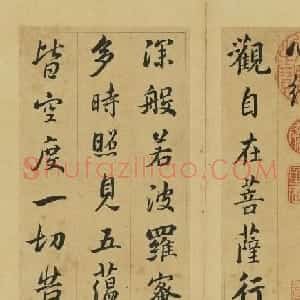 觀自在菩薩行
深般若波羅蜜
多時照見五蘊
皆空度一切苦
Shufaziliao.com